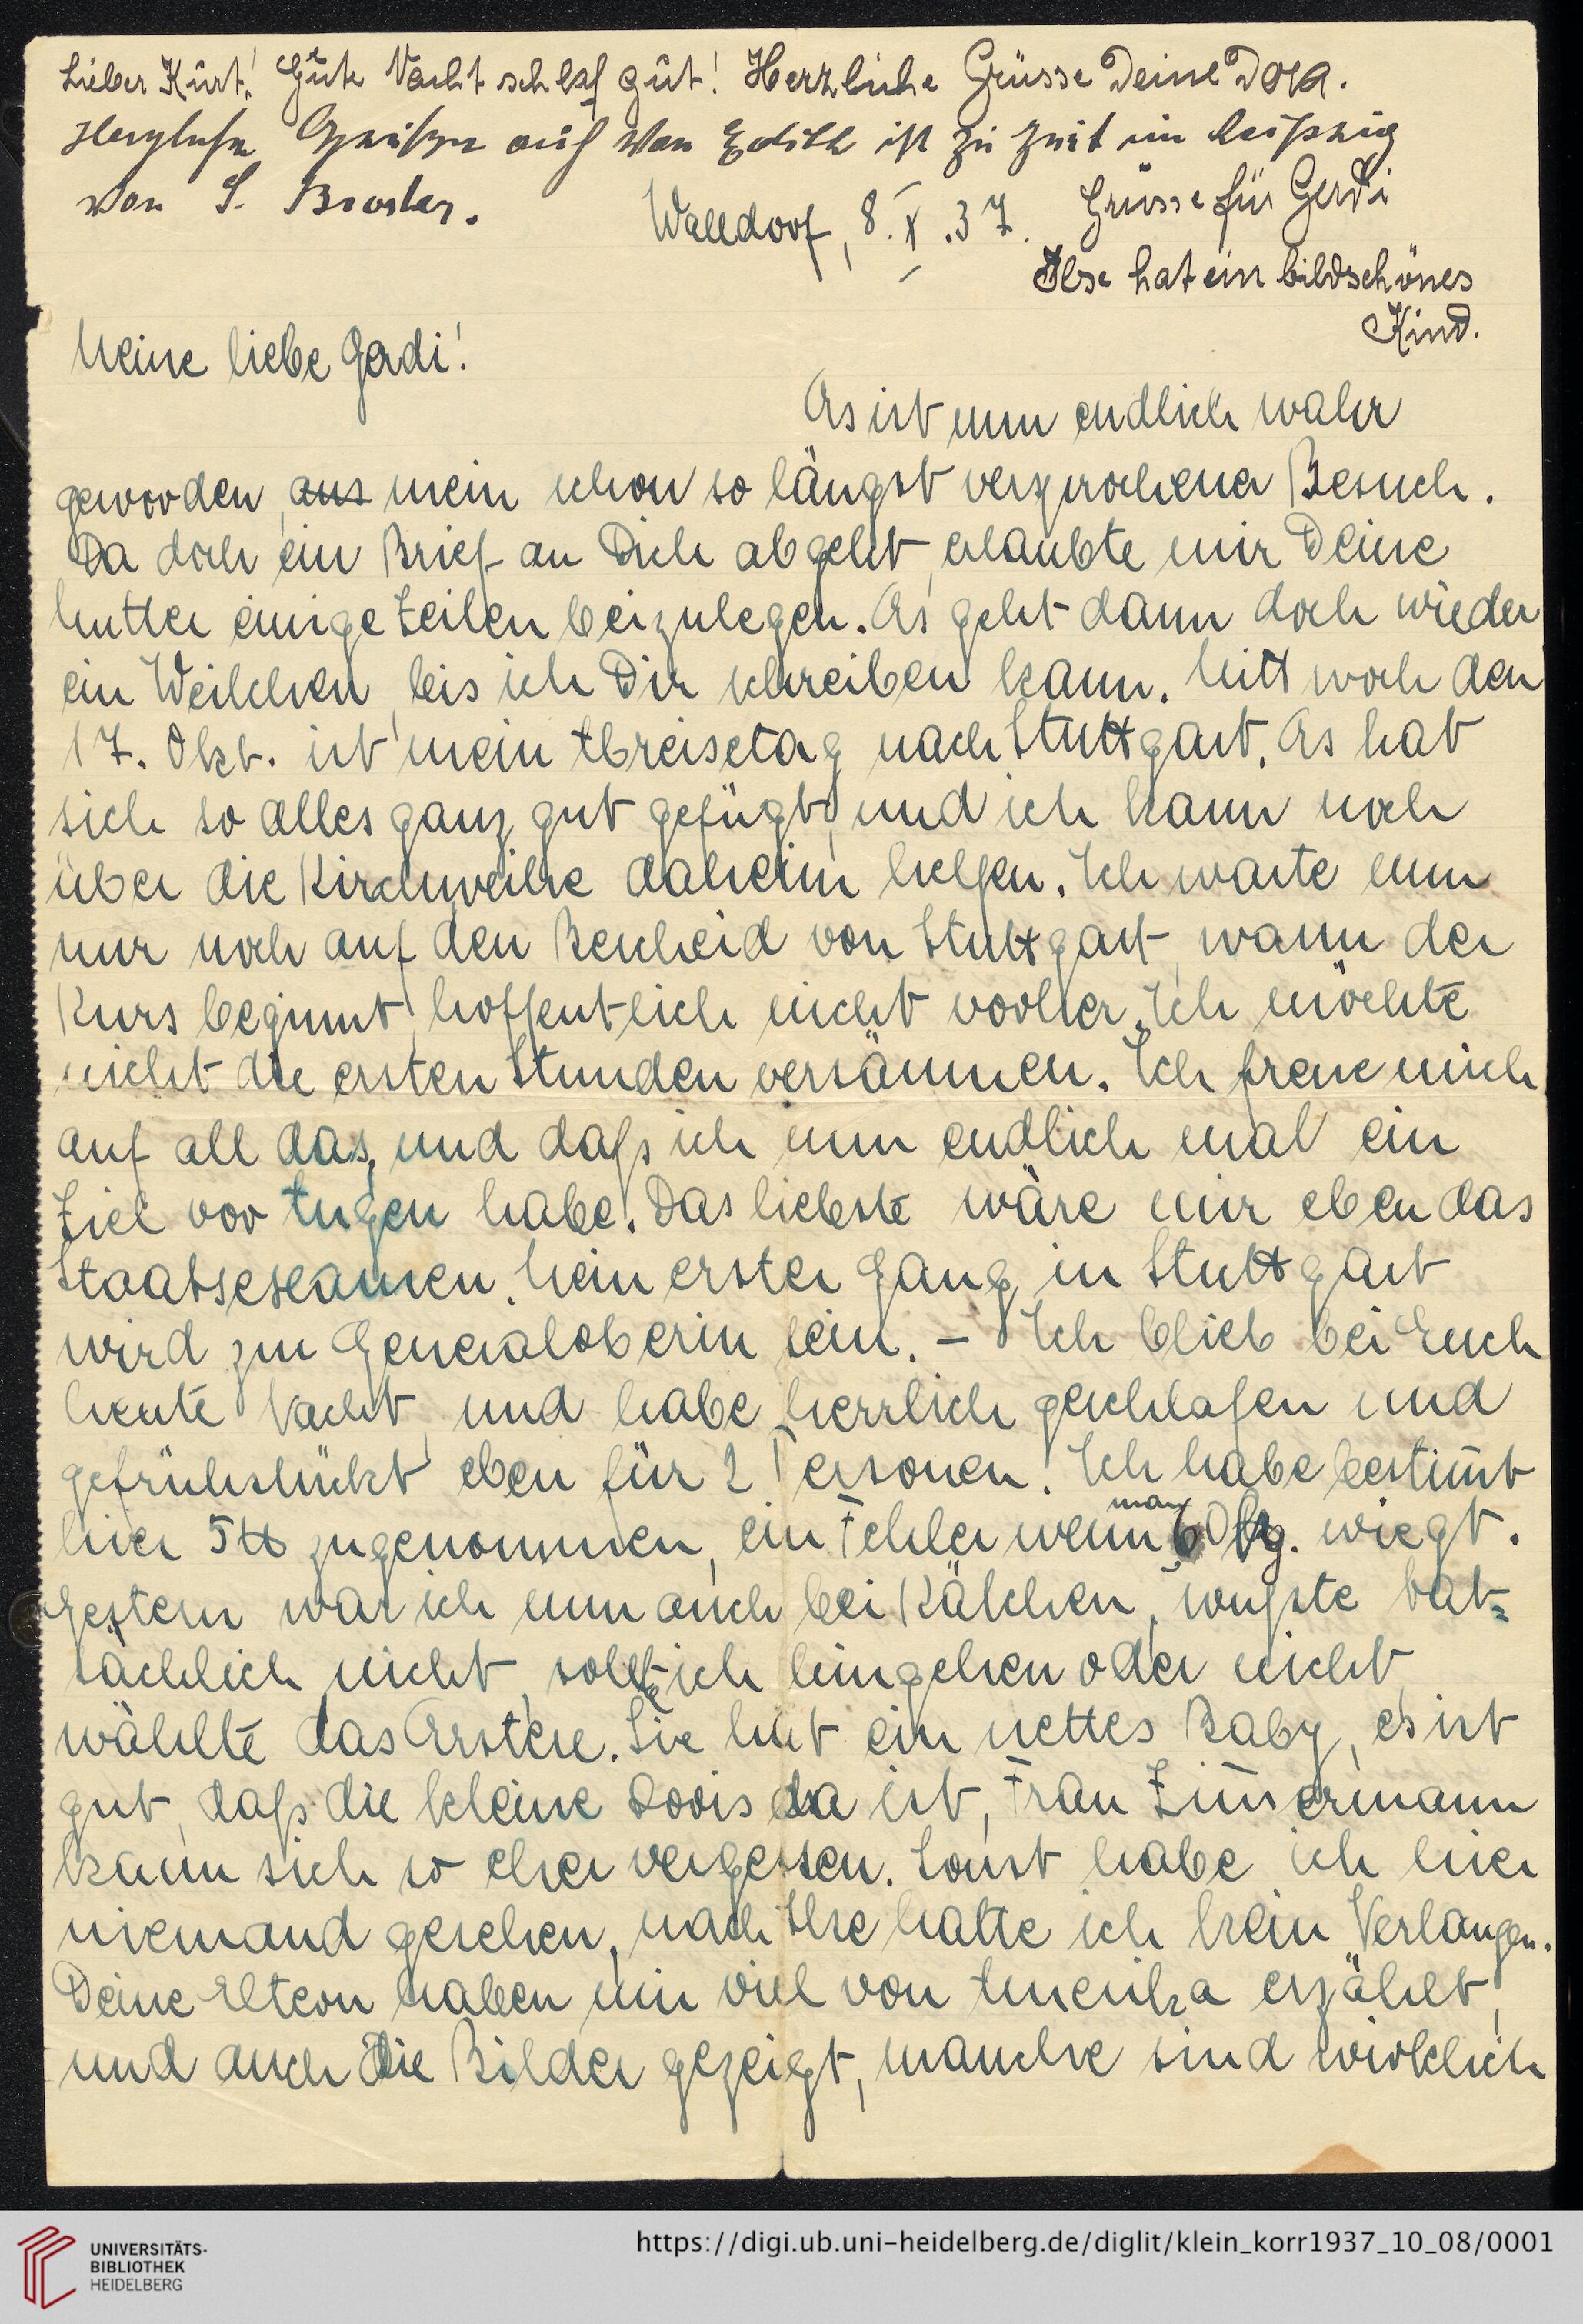 Lieber Kurt! Gute Nacht schlaf gut! Herzliche Grüsse Deine Dora.
Herzliche Grüße auch von Edith ist zu Zeit in Leipzig
von S.
Walldorf, 8.X.37.
Grüsse für Gerdi
Ilse hat ein bildschönes
Kind.
Meine liebe Gerdi!
Es ist nun endlich wahr
geworden, aus mein schon so längst versprochener Besuch.
Da doch ein Brief an Dich abgeht, erlaubte mir Deine
Mutter einige Zeilen beizulegen. Es geht dann doch wieder
ein Weilchen, bis ich Dir schreiben kann. Mittwoch den
17. Okt. ist mein Abreisetag nach Stuttgart. Es hat
sich so alles ganz gut gefügt, und ich kann noch
über die Kirchweihe daheim helfen. Ich warte nun
nur noch auf den Bescheid von Stuttgart, wann der
Kurs beginnt, hoffentlich nicht vorher. Ich möchte
nicht die ersten Stunden versäumen. Ich freue mich
auf all das, und daß ich nun endlich mal ein
Ziel vor Augen habe. Das liebste wäre mir eben das
Staatsexamen. Mein erster Gang in Stuttgart
wird zur Generaloberin sein. – Ich blieb bei Euch
heute Nacht, und habe herrlich geschlafen und
gefrühstückt, eben für 2 Personen! Ich habe bestimt
hier 5 ℔ zugenommen, ein Fehler wenn man 60 kg. wiegt.
Gestern war ich nun auch bei Kätchen, wußte tat=
sächlich nicht, sollte ich hingehen oder nicht,
wählte das Erstere. Sie hat ein nettes Baby, es ist
gut, daß die kleine Doris da ist, Frau Zimermann
kann sich so eher vergessen. Sonst habe ich hier
niemand gesehen, nach Ilse hatte ich kein Verlangen.
Deine Eltern haben mir viel von Amerika erzählt,
und auch die Bilder gezeigt, manche sind wirklich
UNIVERSITÄTS-
BIBLIOTHEK
HEIDELBERG
https://digi.ub.uni-heidelberg.de/diglit/klein_korr1937_10_08/0001